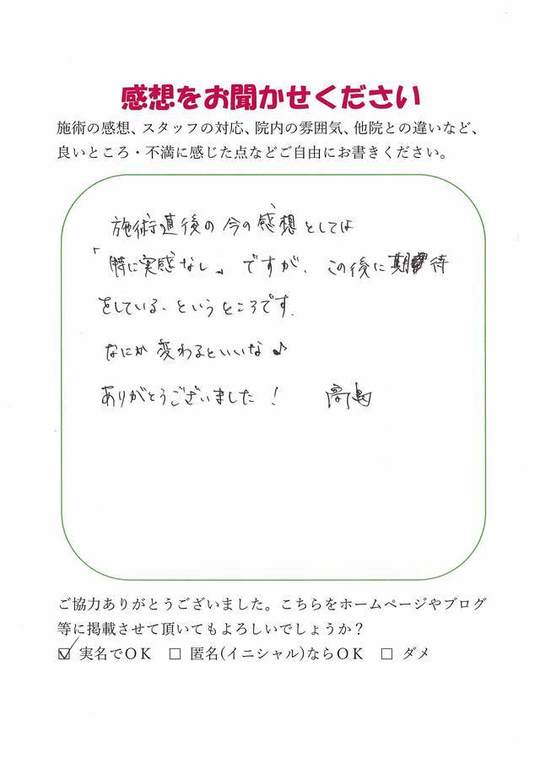 感想をお聞かせください
施術の感想、スタッフの対応、院内の雰囲気、他院との違いなど、
良いところ・不満に感じた点などご自由にお書きください。
施術直後の今の感想としては
「特に実感なし」ですが、この後に期待
をしている、というところです。
なにか変わるといいな♪
ありがとうございました!
ご協力ありがとうございました。こちらをホームページやブログ
等に掲載させて頂いてもよろしいでしょうか?
☑ 実名でOK □ 匿名(イニシャル)ならOK □ ダメ